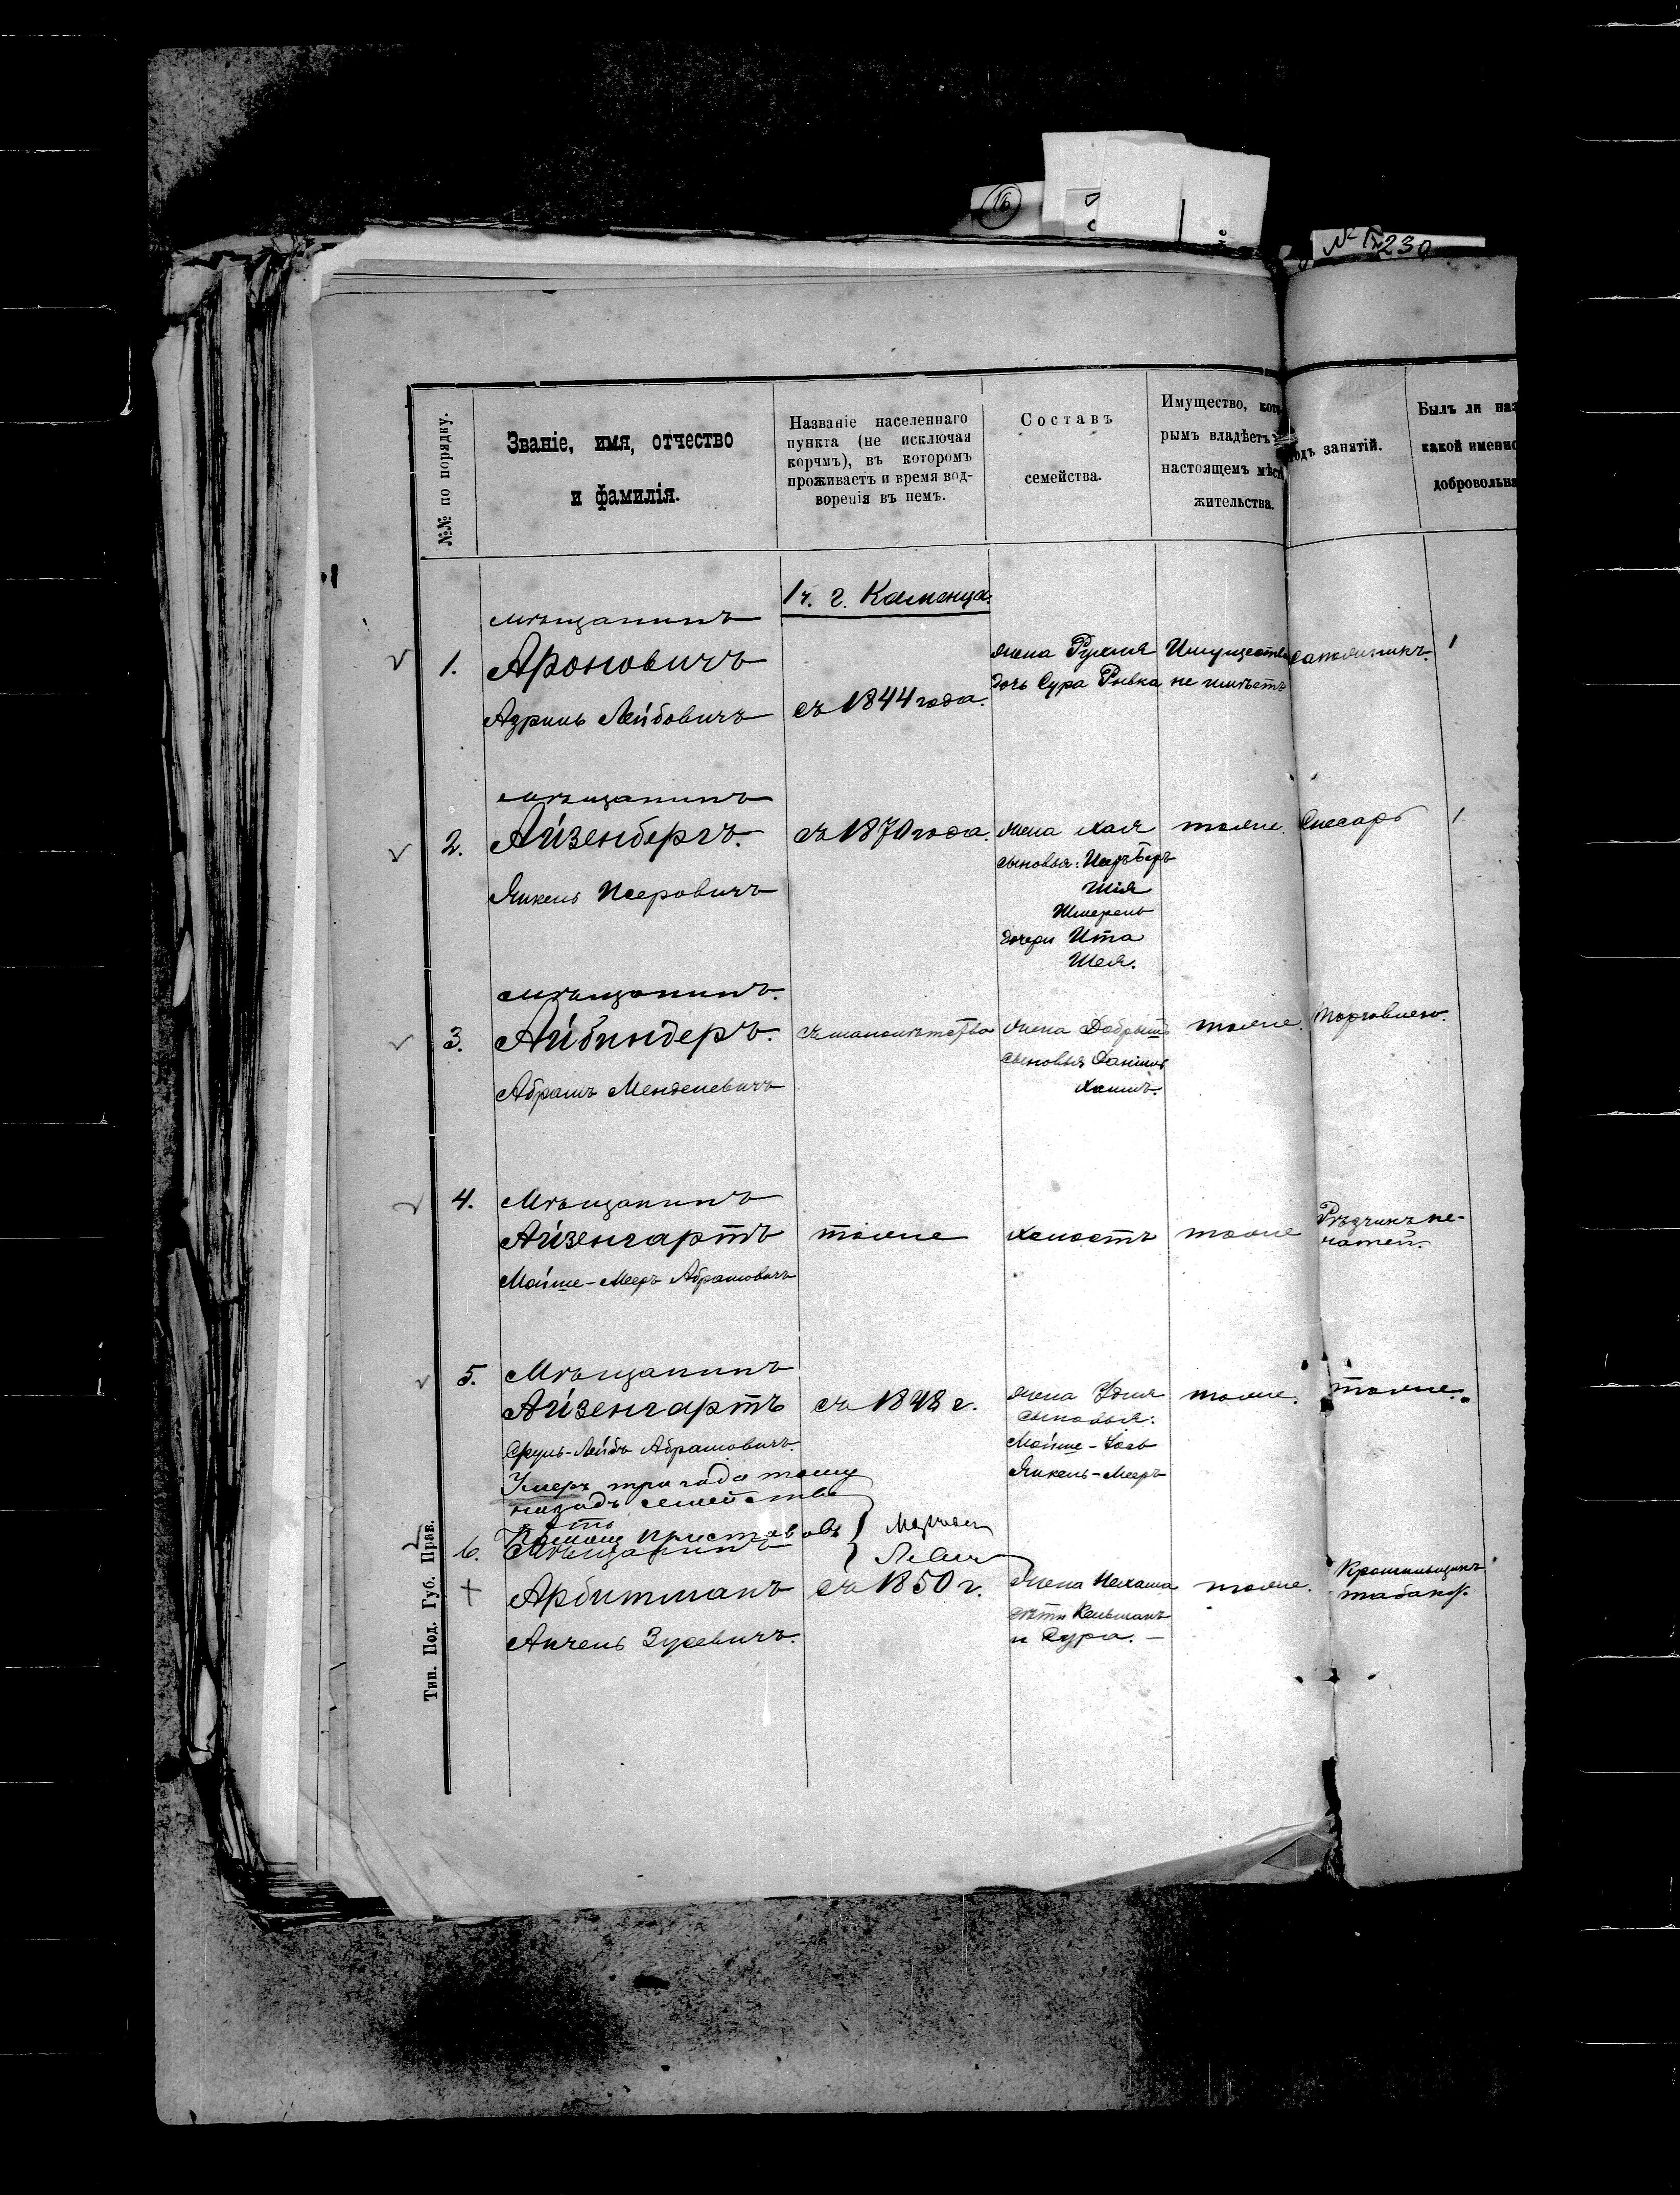 16
№ 230
№№ по порядку.
Званіе, имя, отчество
и фамилія.
Названіе населеннаго
пункта (не исключая
корчмъ), въ которомъ
проживаетъ и время вод-
воренія въ немъ.
Составъ
семейства.
Имущество, кото
рымъ владѣетъ
настоящемъ мѣст
жительства.
одъ занятій.
Былъ ли наз
какой именно
добровольна
1 ч. г. Каменца.
1.
мѣщанинъ
Ароновичъ
Азриль Лейбовичъ
съ 1844 года.
жена Рухля
дочь Сура Ривка
Имущества
не имѣетъ
сапожникъ.
2.
мѣщанинъ
Айзенбергъ.
Янкель Иееровичъ
съ 1870 года.
жена Хая
сыновья: Беръ
Шія
Шмерель
дочери Ита
Шея.
тоже.
Слесарь
3.
мѣщанинъ.
Айбиндеръ.
Абрамъ Менделевичъ
съ малолѣтства
жена Добрышъ
сыновья Данiилъ
Хаимъ.
тоже.
Торговлею.
4.
Мѣщанинъ
Айзенгартъ
Мойше-Мееръ Абрамовичъ
тоже
холостъ
тоже
Рѣзчикъ пе-
чатей.
5.
Мѣщанинъ
Айзенгартъ
Сруль-Лейбъ Абрамовичъ.
съ 1848 г.
жена Удля
сыновья:
Мойше-
Янкель-Мееръ
тоже.
тоже.
Умеръ три года тому
назадъ семейство
Приставовъ
6.
Мѣщанинъ
Арбитманъ
Анчель Зусевичъ.
съ 1850 г.
жена Нехама
дѣти Кельманъ
и Сура. —
тоже.
Крошильщикъ
табаку.
Тип. Под. Губ. Прав.